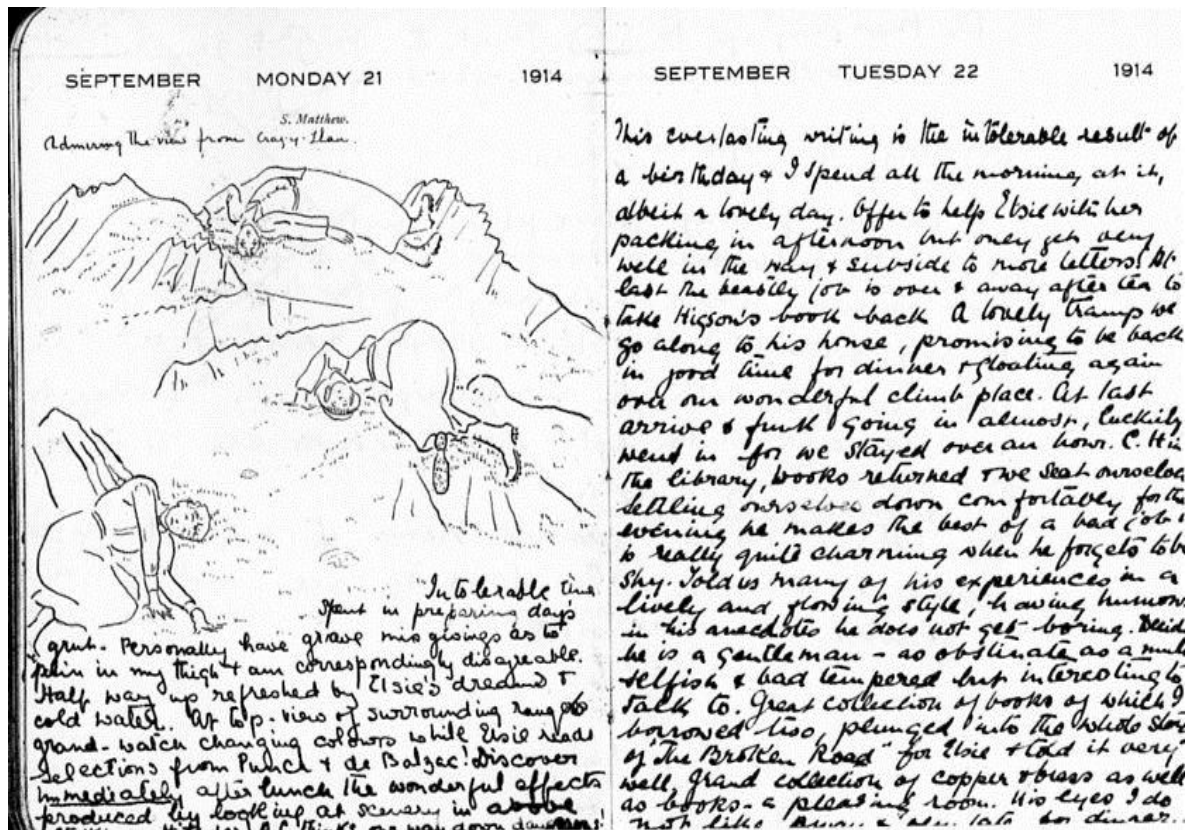 SEPTEMBER MONDAY 21 1914
S. Matthew.
Admiring the view from Crazy-Llan.
Intolerable time
spent in preparing days
grub. Personally have grave misgivings as to
pain in my thigh & am correspondingly disagreeable.
Half way up refreshed by Elsie's dreams &
cold water. At top - view of surrounding ranges
grand - watch changing colours while Elsie reads
selections from Punch & de Balzac! Discover
immediately after lunch the wonderful effects
produced by looking at scenery in above
way down
SEPTEMBER TUESDAY 22 1914
This everlasting writing is the intolerable result of
a birthday & I spend all the morning at it,
albeit a lovely day. Offer to help Elsie with her
packing in afternoon but only get very
well in the way & subside to more letters. At
last the beastly job is over & away after tea to
take Higson's book back. A lovely tramp we
go along to his house, promising to be back
in good time for dinner & gloating again
over our wonderful climb place. At last
arrive & funk going in almost, luckily
went in for we stayed over an hour. C. H in
the library, books returned & we seat ourselves
settling ourselves down comfortably for the
evening he makes the best of a bad job &
is really quite charming when he forgets to be
shy. Told us many of his experiences in a
lively and flowing style, & having humour
in his anecdotes he does not get boring.
he is a gentleman - as obstinate as a mule
selfish & bad tempered but interesting to
talk to. Great collection of books of which I
borrowed two, plunged into the whole story
of "The Broken Road" for Elsie & told it very
well, Grand collection of copper & brass as well
as books - a pleasing room. His eyes I do
not like late for dinner.